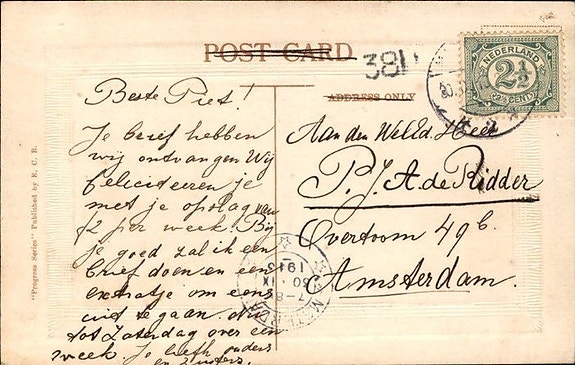 POST CARD
381
ADDRESS ONLY
NEDERLAND
2½
CENT
"Progress Series" Published by E. C. B.
Beste Piet!
Je brief hebben
wij ontvangen Wij
feliciteeren je
met je opslag van
f2 per week. Bij
je goed zal ik een
brief doen en een
extratje om eens
uit te gaan.
tot Zaterdag over een
week. Je liefh. ouders
en zusters.
Aan den WelEd. Heer
P. J. A. de Ridder
Overtoom 49 b.
Amsterdam.
AMSTERDAM
7-8
30 IX
1913